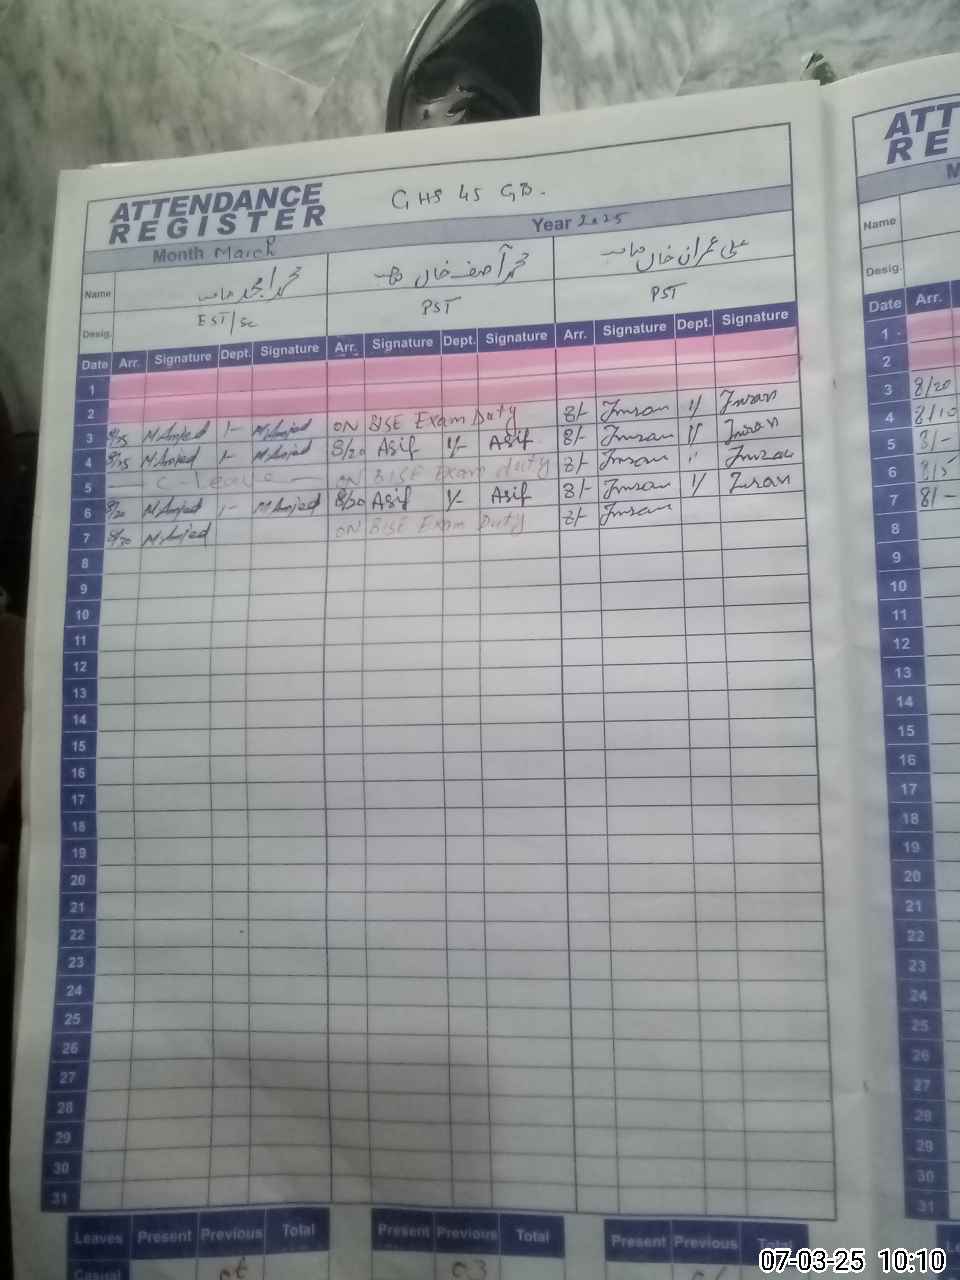 ATTENDANCE REGISTER
GHS 45 GB.
Month March Year 2025
Name محمد امجد صاحب محمد آصف خان صاحب علی عمران خان صاحب
Desig. EST/Sc PST PST
Date Arr. Signature Dept. Signature Arr. Signature Dept. Signature Arr. Signature Dept. Signature
1
2
3 8/25 M.Amjed 1- M.Amjed ON BISE Exam Duty 8/- Imran 1/ Imran
4 8/15 M.Amjed 1- M.Amjed 8/20 Asif 1/- Asif 8/- Imran 1/ Imran
5 — C - leave — ON BISE Exam duty 8/- Imran Imran
6 8/20 M.Amjed 1- M.Amjed 8/20 Asif 1/- Asif 8/- Imran 1/ Imran
7 8/20 M.Amjed ON BISE Exam Duty 8/- Imran
8
9
10
11
12
13
14
15
16
17
18
19
20
21
22
23
24
25
26
27
28
29
30
31
Leaves Present Previous Total Present Previous Total Present Previous Total
Casual 03
ATT
RE
M
Name
Desig.
Date Arr.
1
2
3 8/20
4 8/10
5 8/-
6 8/5
7 8/-
8
9
10
11
12
13
14
15
16
17
18
19
20
21
22
23
24
25
26
27
28
29
30
31
07-03-25 10:10